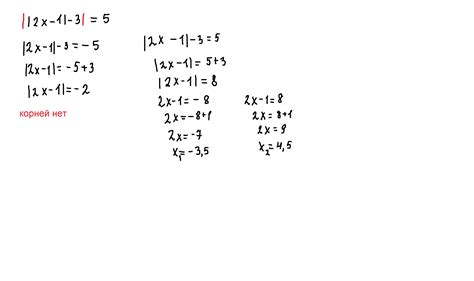 ||2x-1|-3| = 5
|2x-1|-3=-5
|2x-1|=-5+3
|2x-1|=-2
корней нет
|2x-1|-3=5
|2x-1|=5+3
|2x-1|=8
2x-1=-8
2x=-8+1
2x=-7
x₁=-3,5
2x-1=8
2x=8+1
2x=9
x₂=4,5